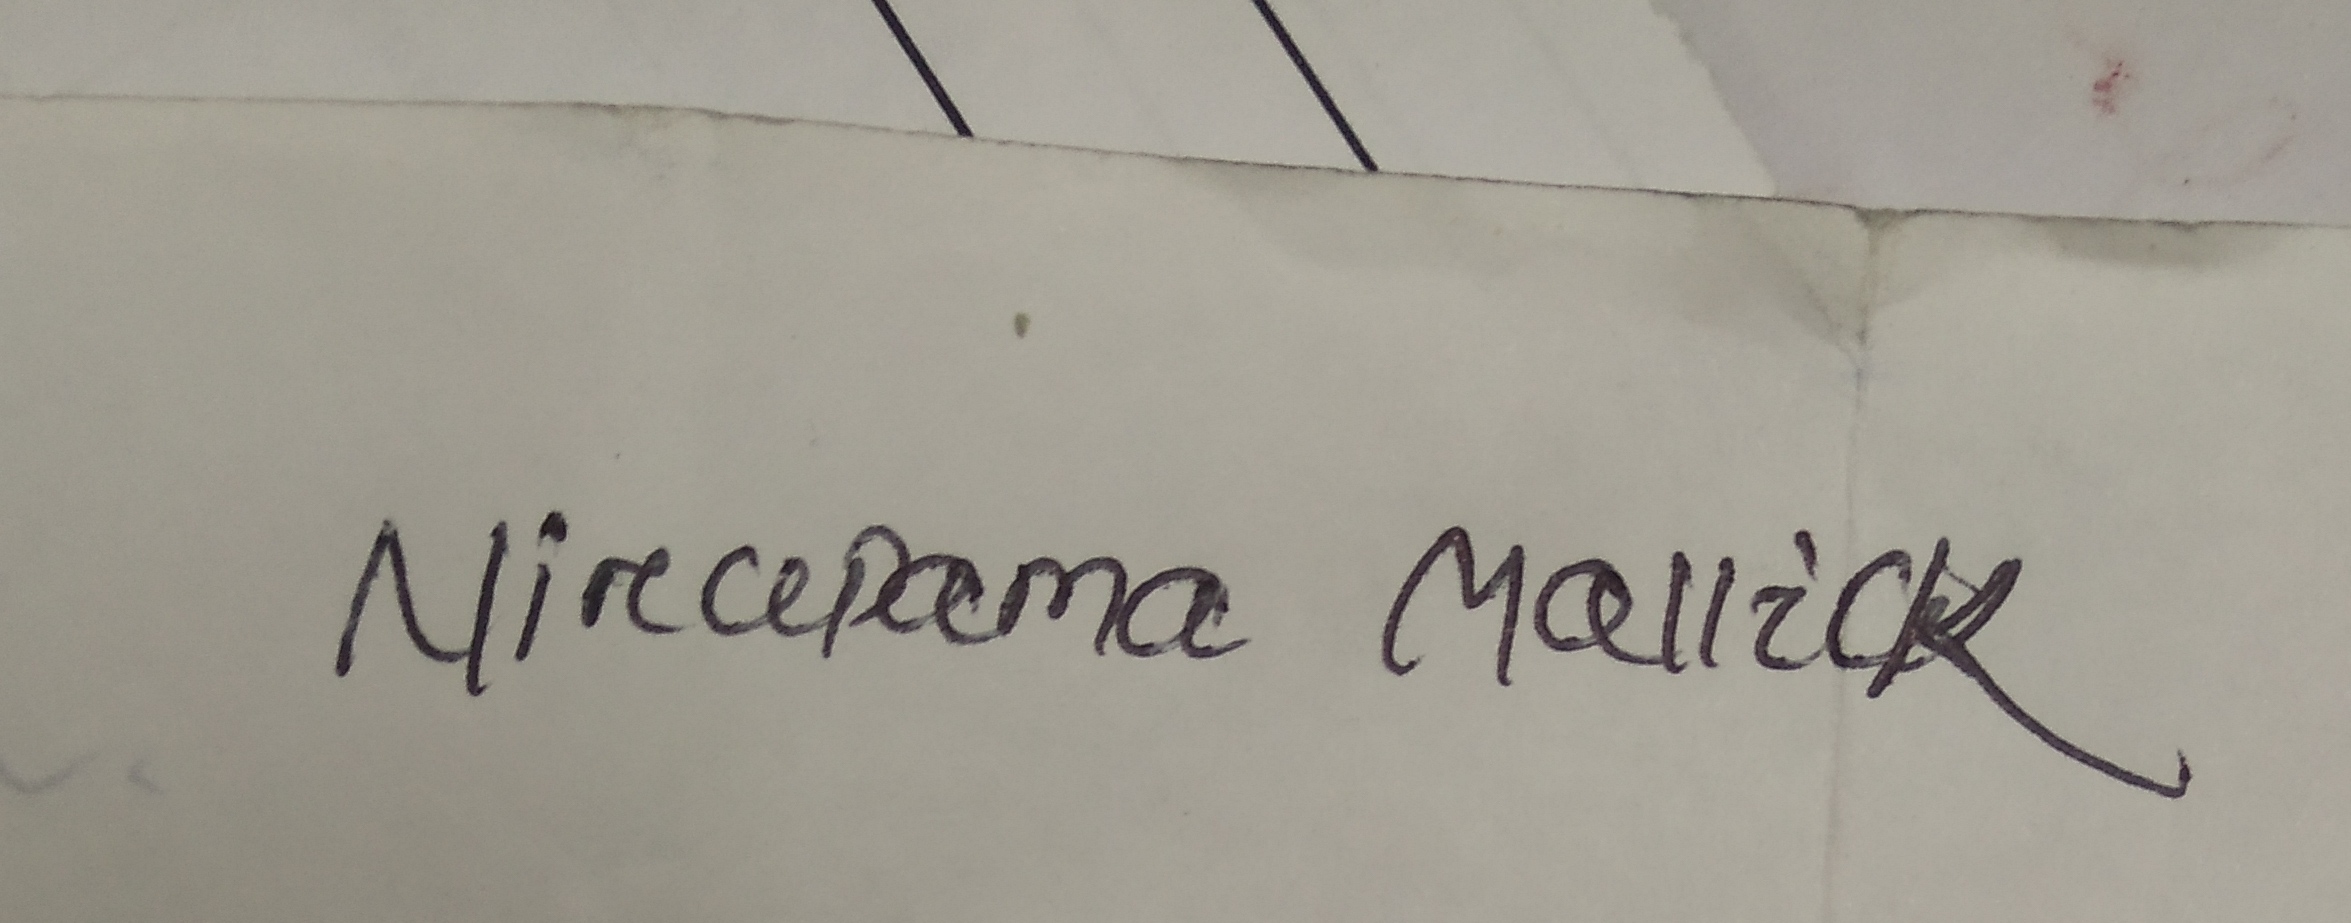 Nirupama Mallick